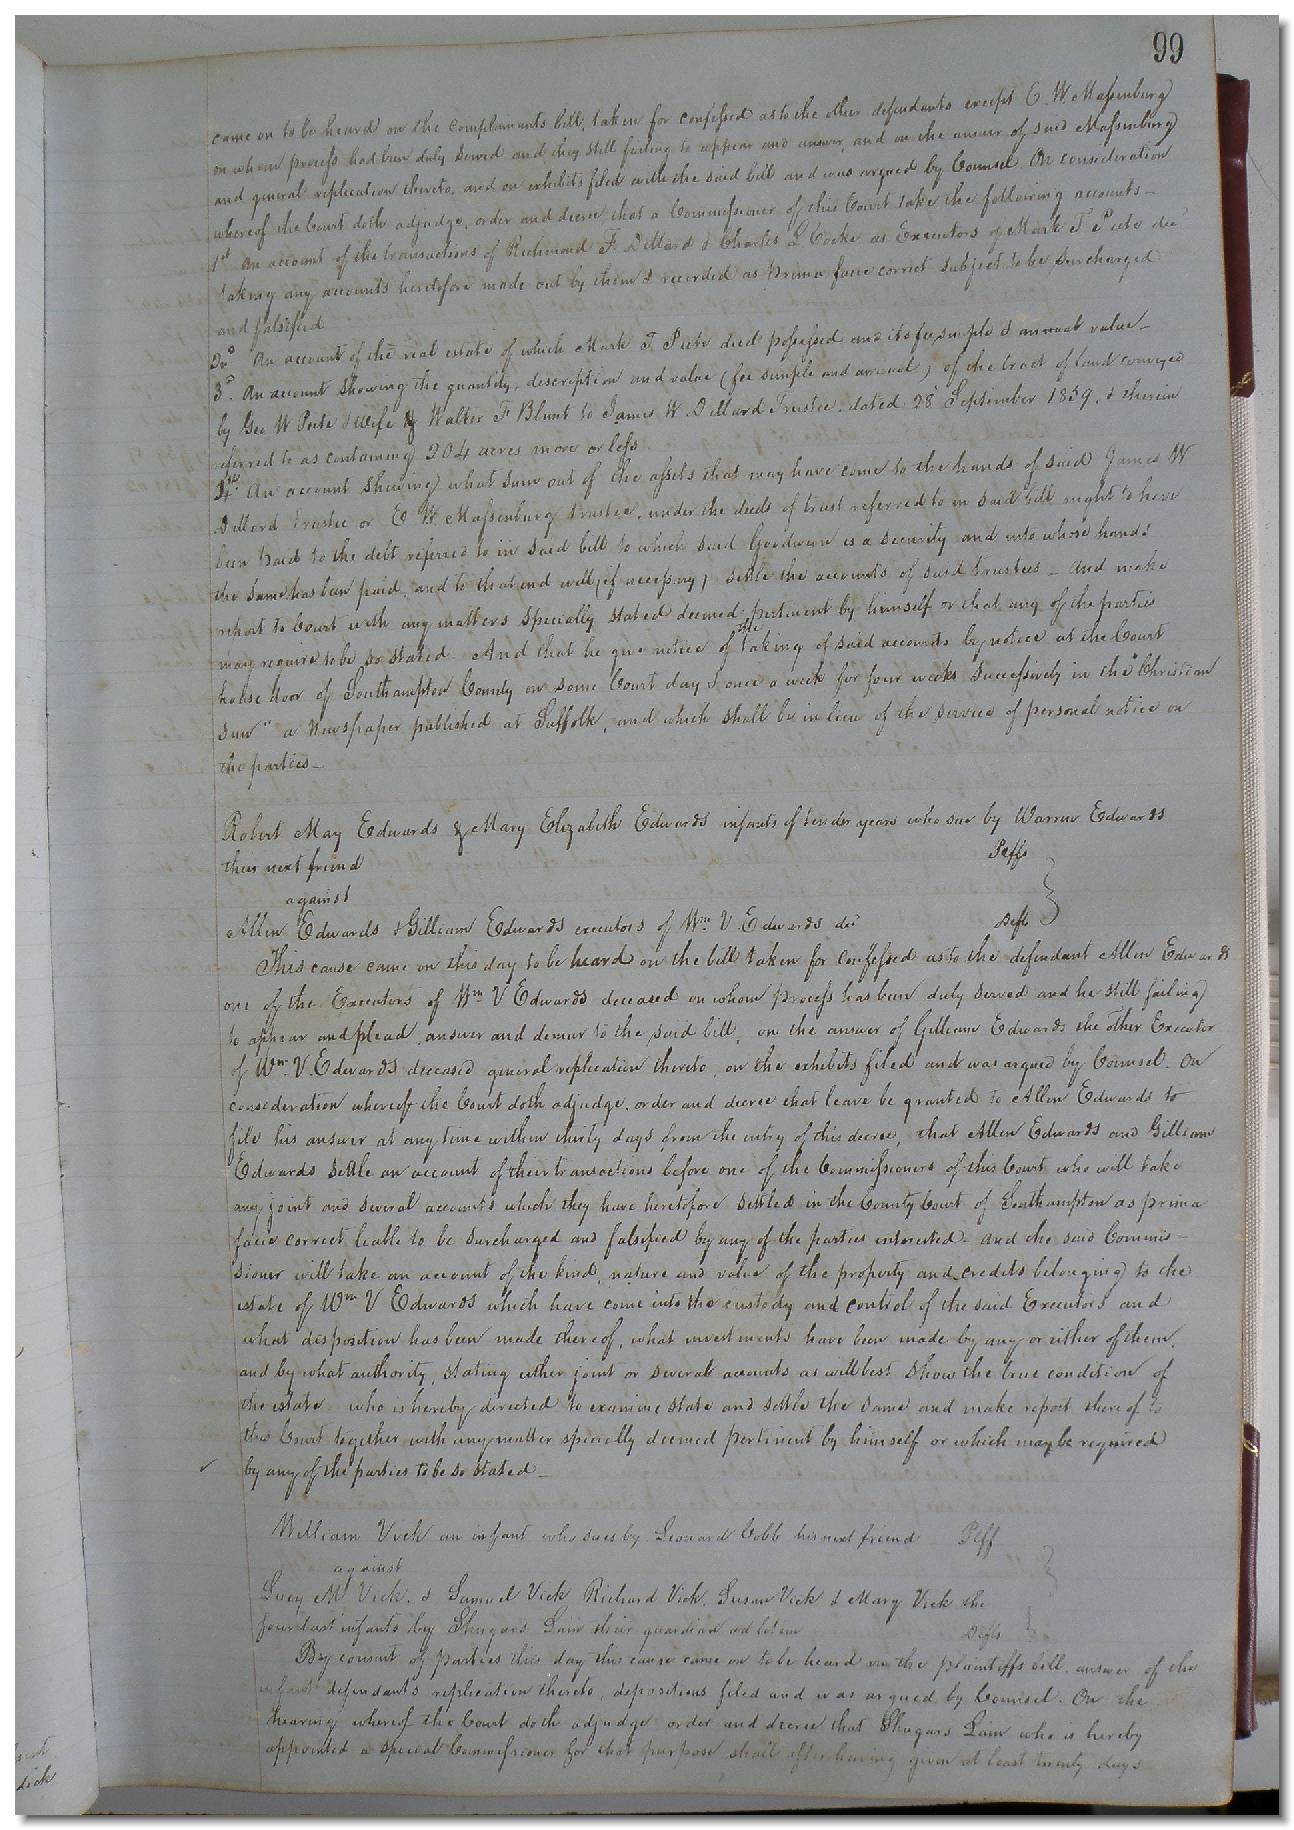 99
came on to be heard on the complainants bill, taken for confessed as to the other defendants except E. W. Massenburg
on whom process had been duly served and they still failing to appear and answer, and on the answer of said Massenburg
and general replication thereto, and on exhibits filed with the said bill and was argued by Counsel. On consideration
whereof the Court doth adjudge, order and decree that a Commissioner of this Court take the following accounts—
1st An account of the transactions of Richmond F. Dillard & Charles L Cocke as Executors of Mark T Peete decd
taking any accounts heretofore made out by them & recorded as prima facie correct subject to be surcharged
and falsified
2d An account of the real estate of which Mark T. Peete died possessed and its fee simple & annual value—
3d. An account showing the quantity, description and value (fee simple and annual) of the tract of land conveyed
by Geo W Peete & wife & Walter F Blunt to James W Dillard Trustee, dated 28 September 1859, & therein
referred to as containing 204 acres more or less.
4th An account shewing what sum out of the assets that may have come to the hands of said James W
Dillard trustee or E W Massenburg trustee, under the deeds of trust referred to in said bill might to have
been paid to the debt referred to in said bill to which said Goodwin is a security and into whose hands
the same has been paid, and to that end will, (if necessary) settle the accounts of said trustees — And make
report to Court with any matters specially stated deemed pertinent by himself or that any of the parties
may require to be so stated. And that he give notice of the taking of said accounts by notice at the Court
house door of Southampton County on some Court day & once a week for four weeks successively in the "Christian
Sun" a Newspaper published at Suffolk, and which shall be in lieu of the service of personal notice on
the parties—
Robert May Edwards & Mary Elizabeth Edwards infants of tender years who sue by Warren Edwards
their next friend Plffs
against
Allen Edwards & Gilliam Edwards executors of Wm V. Edwards decd Defts
This cause came on this day to be heard on the bill taken for confessed as to the defendant Allen Edwards
one of the Executors of Wm V Edwards deceased on whom process has been duly served and he still failing
to appear and plead, answer and demur to the said bill, on the answer of Gilliam Edwards the other Executor
of Wm. V. Edwards deceased general replication thereto, on the exhibits filed and was argued by Counsel. On
consideration whereof the Court doth adjudge, order and decree that leave be granted to Allen Edwards to
file his answer at any time within thirty days from the entry of this decree, that Allen Edwards and Gilliam
Edwards settle an account of their transactions before one of the Commissioners of this Court, who will take
any joint and several accounts which they have heretofore settled in the County Court of Southampton as prima
facie correct liable to be surcharged and falsified by any of the parties interested. And the said Commis-
sioner will take an account of the kind, nature and value of the property and credits belonging to the
estate of Wm V Edwards which have come into the custody and control of the said Executors and
what disposition has been made thereof, what investments have been made by any or either of them,
and by what authority, stating either joint or several accounts as will best show the true condition of
the estate who is hereby directed to examine state and settle the same and make report thereof to
this Court together with any matter specially deemed pertinent by himself or which may be required
by any of the parties to be so stated—
William Vick an infant who sues by Leonard Cobb his next friend Plff
against
Lucy M Vick, & Samuel Vick, Richard Vick, Susan Vick & Mary Vick the
four last infants by Shugars Lain their guardian ad litem Defts
By consent of parties this day this cause came on to be heard on the plaintiffs bill, answer of the
infant defendants replication thereto, depositions filed and was argued by Counsel. On the
hearing whereof the Court doth adjudge order and decree that Shugars Lain who is hereby
appointed a special Commissioner for that purpose shall after having given at least twenty days